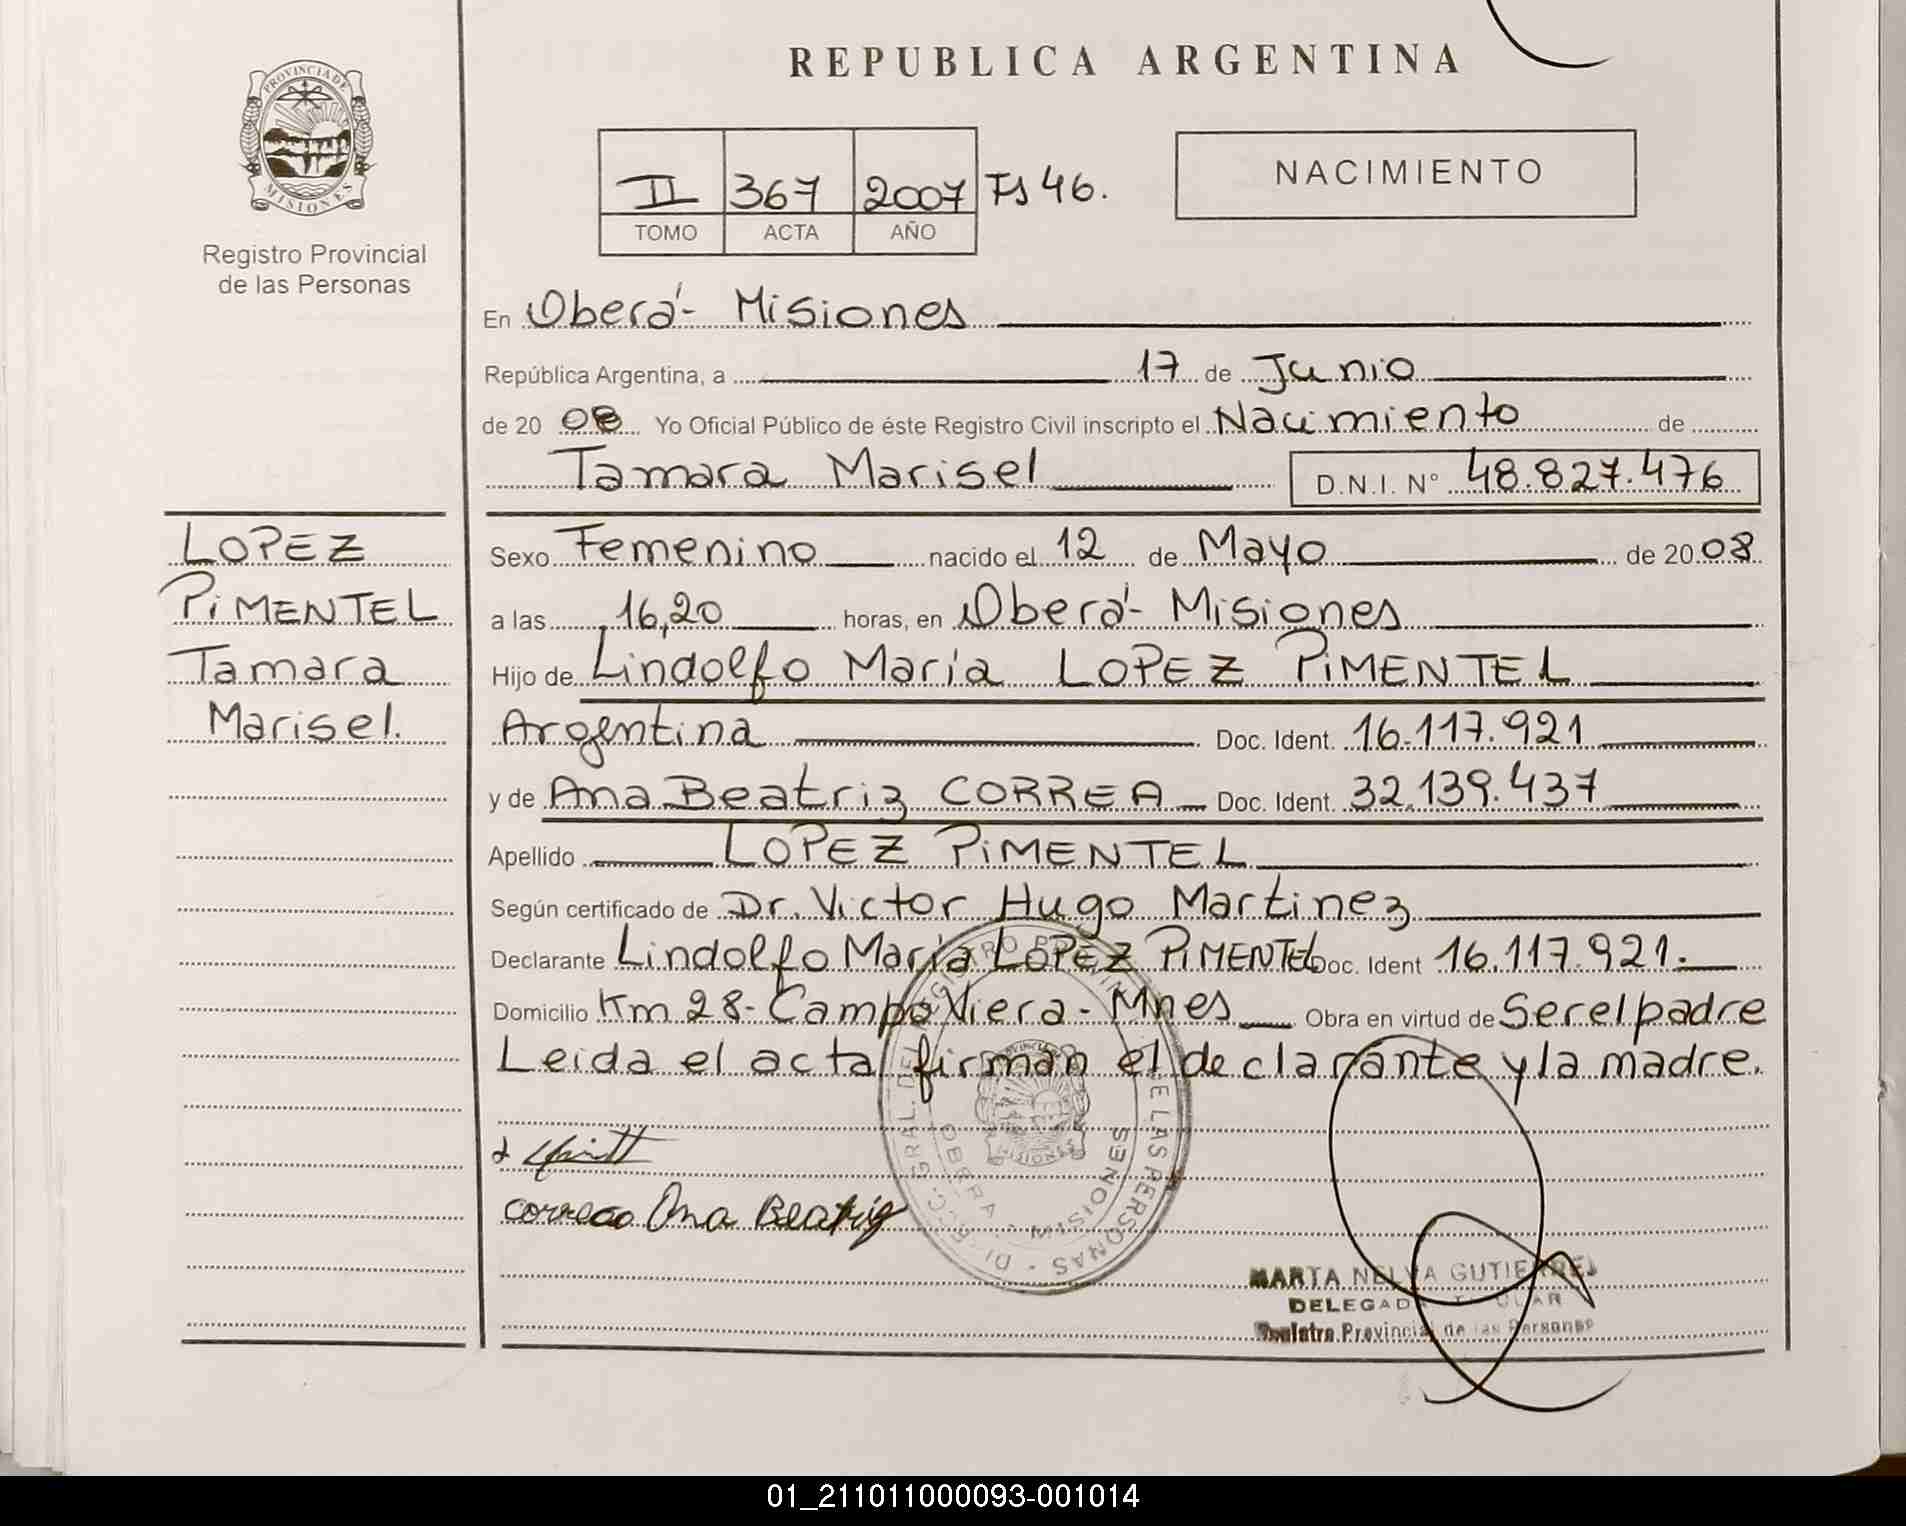 REPUBLICA ARGENTINA
PROVINCIA DE
MISIONES
Registro Provincial
de las Personas
II 367 2007 Fs 46.
TOMO ACTA AÑO
NACIMIENTO
En Oberá - Misiones
República Argentina, a 17 de Junio
de 20 08 Yo Oficial Público de éste Registro Civil inscripto el Nacimiento de
Tamara Marisel D.N.I. N° 48.827.476
LOPEZ
PIMENTEL
Tamara
Marisel.
Sexo Femenino nacido el 12 de Mayo de 20 08
a las 16,20 horas, en Oberá - Misiones
Hijo de Lindolfo María LOPEZ PIMENTEL
Argentina Doc. Ident. 16.117.921
y de Ana Beatriz CORREA Doc. Ident. 32.139.437
Apellido LOPEZ PIMENTEL
Según certificado de Dr. Victor Hugo Martinez
Declarante Lindolfo María LOPEZ PIMENTEL Doc. Ident 16.117.921.
Domicilio Km 28 - Campo Viera - Mnes Obra en virtud de Ser el padre
Leida el acta firman el declarante y la madre.
Correa Ana Beatriz
DE LAS PERSONAS
OBERA - MISIONES
MISIONES
MARTA NELVA GUTIERREZ
DELEGADA TITULAR
Registro Provincial de las Personas
01_211011000093-001014